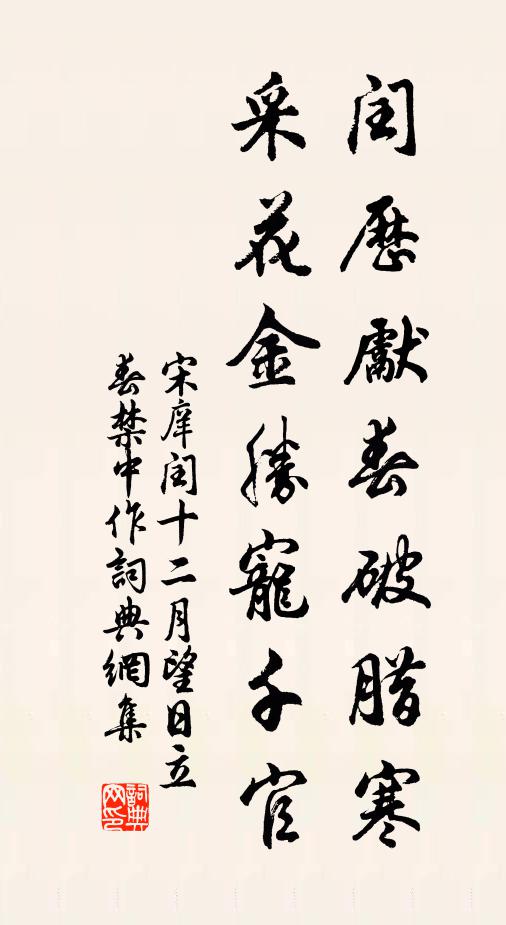 闰歷獻春破腊寒
采花金勝寵千官
宋庠闰十二月望日立
春禁中作詞典網集
詞典网印